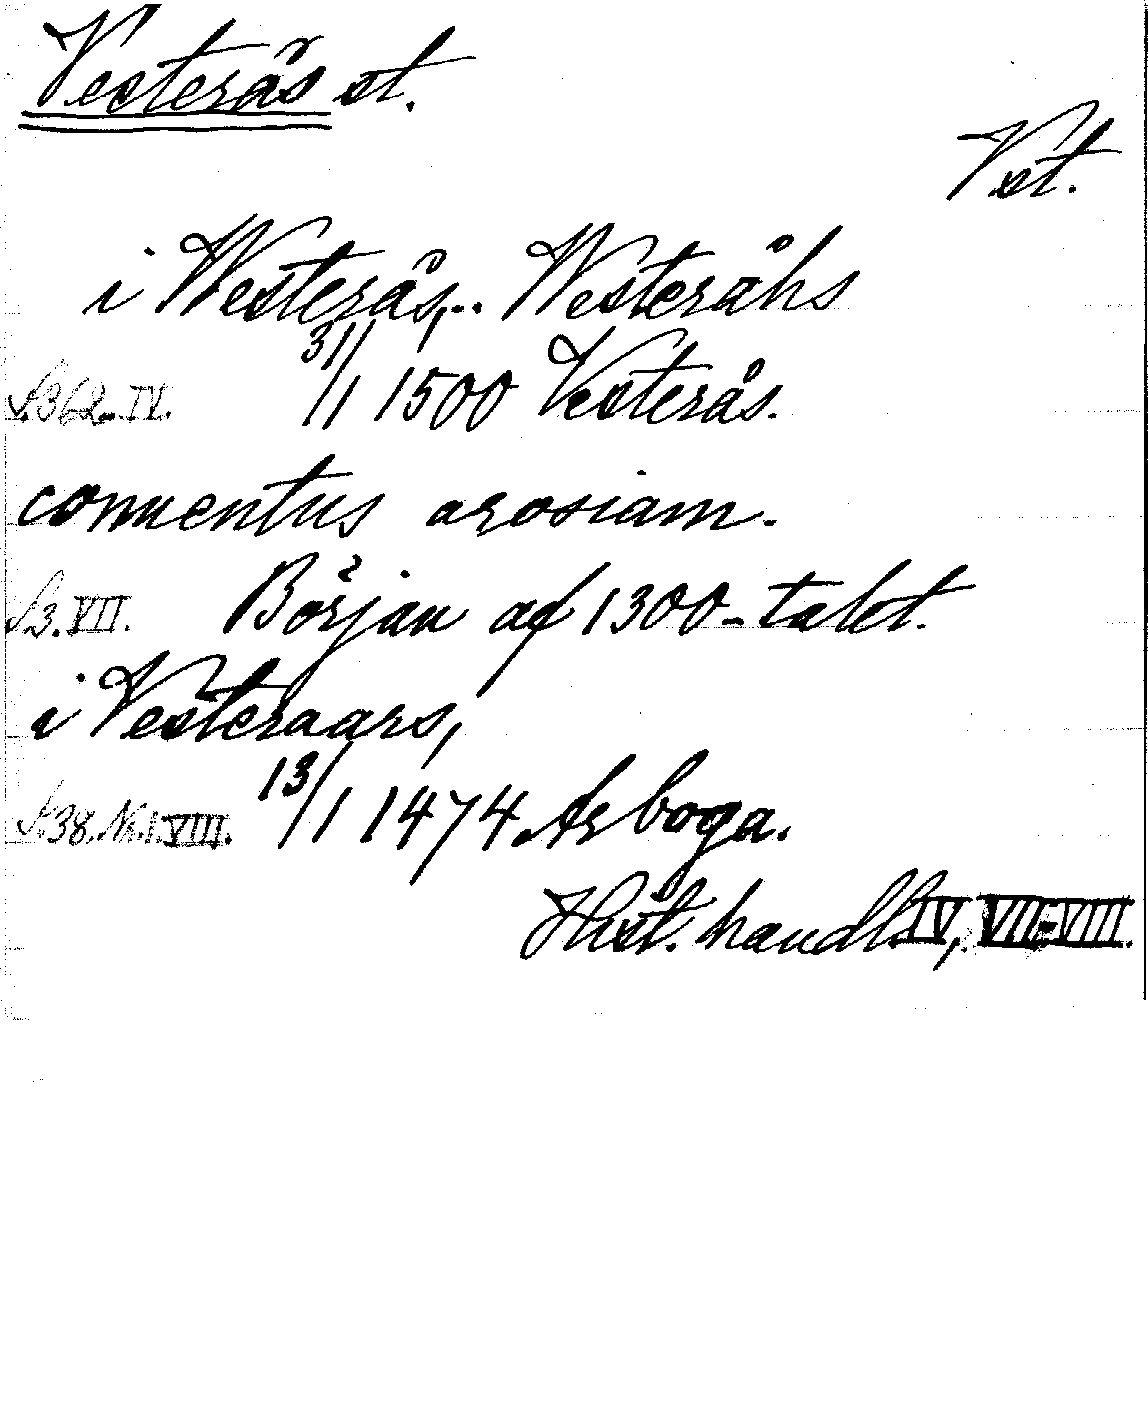 Vesterås st.
Vst.
i Westerås,.. Westeråhs
S.362. IV. 31/1 1500 Vesterås.
conuentus arosiam.
S.3. VII. Början af 1300-talet.
i Vesteraars,
S.38. Nr. 1. VIII. 13/1 1474 Arboga.
Hist. handl. IV, VII-VIII.